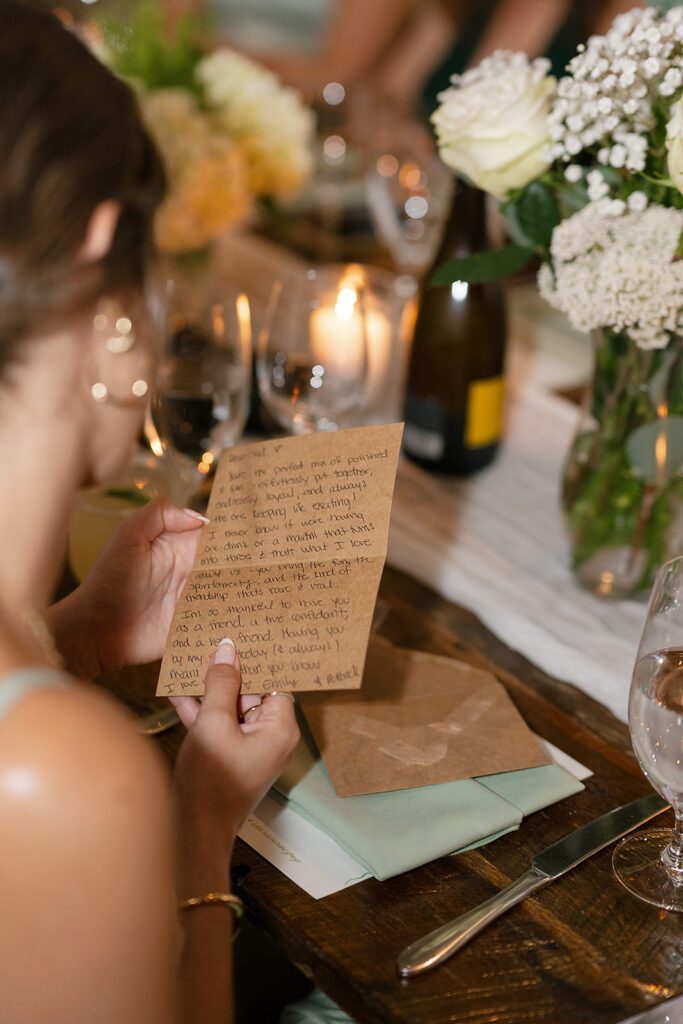 Dear Val ♡
You're the perfect mix of polished
& fun - effortlessly put together,
endlessly loyal, and always
the one keeping life exciting!
I never know if we're having
one drink or a martini that turns
into three & thats what I love
about us - you bring the fun, the
spontaneity, and the kind of
friendship thats rare & real.
I'm so thankful to have you
as a friend, a true confidant,
and a friend. Having you
by my today (& always)
means than you know
I love Emily &